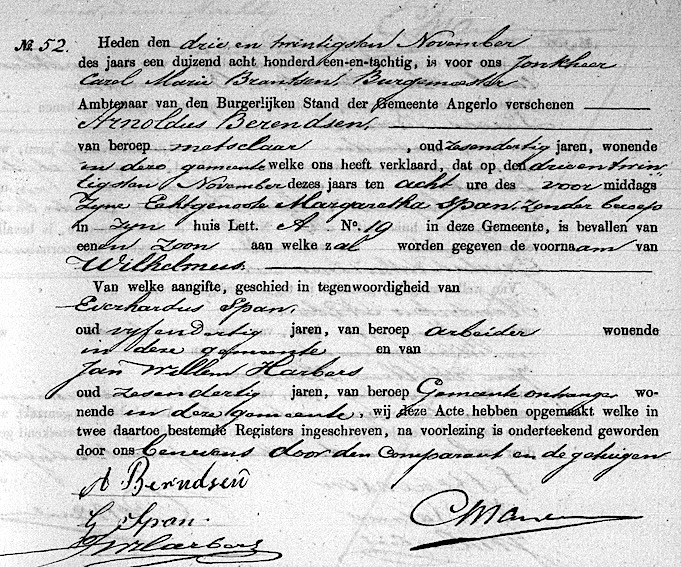 No. 52. Heden den drie en twintigsten November
des jaars een duizend acht honderd een-en-tachtig, is voor ons Jonkheer
Carel Marie Brantsen, Burgemeester
Ambtenaar van den Burgerlijken Stand der Gemeente Angerlo verschenen
Arnoldus Berendsen,
van beroep metselaar , oud zesendertig jaren, wonende
in deze gemeente welke ons heeft verklaard, dat op den drie en twin
tigsten November dezes jaars ten acht ure des voor middags
Zyne Echtgenoote Margaretha Span, zonder beroep
in zyn huis Lett. A No. 19 in deze Gemeente, is bevallen van
eenen Zoon aan welke zal worden gegeven de voornaam van
Wilhelmus.
Van welke aangifte, geschied in tegenwoordigheid van
Everhardus Span,
oud vyfendertig jaren, van beroep arbeider wonende
in deze gemeente en van
Jan Willem Harbers
oud zesendertig jaren, van beroep Gemeente ontvanger wo-
nende in deze gemeente, wij deze Acte hebben opgemaakt welke in
twee daartoe bestemde Registers ingeschreven, na voorlezing is onderteekend geworden
door ons benevens door den Comparant en de getuigen
A Berndsen
Span.
JW Harbers